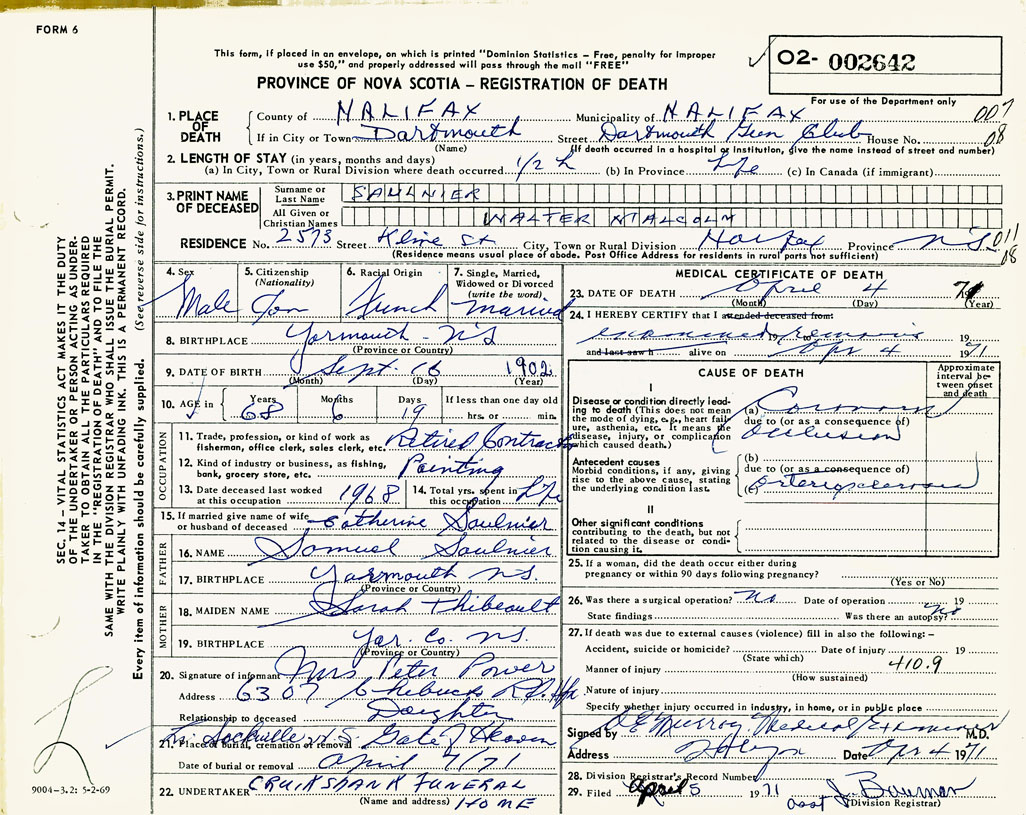 FORM 6
This form, if placed in an envelope, on which is printed "Dominion Statistics – Free, penalty for improper
use $50," and properly addressed will pass through the mail "FREE"
PROVINCE OF NOVA SCOTIA – REGISTRATION OF DEATH
02- 002642
For use of the Department only
1. PLACE OF DEATH County of HALIFAX Municipality of HALIFAX 007
If in City or Town Dartmouth Street Dartmouth Gun Club House No. 08
(Name) (If death occurred in a hospital or institution, give the name instead of street and number)
2. LENGTH OF STAY (in years, months and days)
(a) In City, Town or Rural Division where death occurred 1/2 h (b) In Province Life (c) In Canada (if immigrant)
3. PRINT NAME OF DECEASED Surname or Last Name SAULNIER
All Given or Christian Names WALTER MALCOLM
RESIDENCE No. 2573 Street Kline St City, Town or Rural Division Halifax Province N.S. 011
(Residence means usual place of abode. Post Office Address for residents in rural parts not sufficient) 08
4. Sex 5. Citizenship (Nationality) 6. Racial Origin 7. Single, Married, Widowed or Divorced (write the word)
Male Can French Married
8. BIRTHPLACE Yarmouth N.S
(Province or Country)
9. DATE OF BIRTH Sept. 16 1902
(Month) (Day) (Year)
10. AGE in Years Months Days If less than one day
68 6 19 hrs. or min.
OCCUPATION
11. Trade, profession, or kind of work as fisherman, office clerk, sales clerk, etc. Retired Contractor
12. Kind of industry or business, as fishing, bank, grocery store, etc. Painting
13. Date deceased last worked at this occupation 1968 14. Total yrs. spent in this occupation Life
15. If married give name of wife or husband of deceased Catherine Saulnier
FATHER
16. NAME Samuel Saulnier
17. BIRTHPLACE Yarmouth N.S.
(Province or Country)
MOTHER
18. MAIDEN NAME Sarah Thibeault
19. BIRTHPLACE Yar. Co. N.S.
(Province or Country)
20. Signature of informant Mrs Peter Power
Address 6307 Chebucto Rd. Hfx
Relationship to deceased Daughter
21. Place of burial, cremation or removal Sackville N.S. Gate of Heaven
Date of burial or removal April 7/71
22. UNDERTAKER CRUIKSHANK FUNERAL
(Name and address) HOME
MEDICAL CERTIFICATE OF DEATH
23. DATE OF DEATH April 4 71
(Month) (Day) (Year)
24. I HEREBY CERTIFY that I attended deceased from:
examined remains 19
and last saw h alive on Apr 4 1971
CAUSE OF DEATH
Approximate interval between onset and death
I
Disease or condition directly leading to death (This does not mean the mode of dying, e.g., heart failure, asthenia, etc. It means the disease, injury, or complication which caused death.)
(a) Coronary
due to (or as a consequence of)
occlusion
Antecedent causes
Morbid conditions, if any, giving rise to the above cause, stating the underlying condition last.
(b)
due to (or as a consequence of)
(c) arteriosclerosis
II
Other significant conditions contributing to the death, but not related to the disease or condition causing it.
25. If a woman, did the death occur either during
pregnancy or within 90 days following pregnancy?
(Yes or No)
26. Was there a surgical operation? No Date of operation 19
State findings Was there an autopsy? No
27. If death was due to external causes (violence) fill in also the following:–
Accident, suicide or homicide? Date of injury 19
(State which)
Manner of injury 410.9
(How sustained)
Nature of injury
Specify whether injury occurred in industry, in home, or in public place
Signed by Murray Medical Examiner M.D.
Address Date Apr 4 1971
28. Division Registrar's Record Number
29. Filed April 5 1971 J. Bauman
asst (Division Registrar)
SEC. 14 – VITAL STATISTICS ACT MAKES IT THE DUTY
OF THE UNDERTAKER OR PERSON ACTING AS UNDERTAKER
TO OBTAIN ALL THE PARTICULARS REQUIRED
IN THE "REGISTRATION OF DEATH" AND TO FILE THE
SAME WITH THE DIVISION REGISTRAR WHO SHALL ISSUE THE BURIAL PERMIT.
WRITE PLAINLY WITH UNFADING INK. THIS IS A PERMANENT RECORD.
Every item of information should be carefully supplied. (See reverse side for instructions.)
9004-3.2: 5-2-69